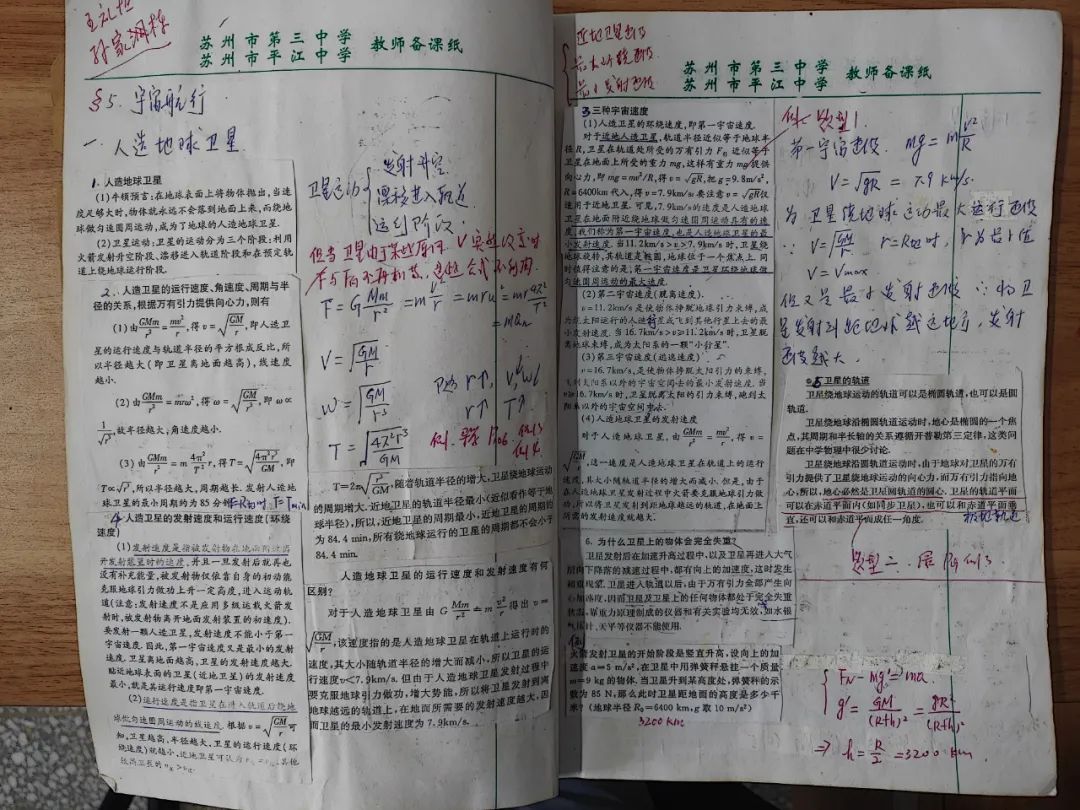 苏州市第三中学
苏州市平江中学
教师备课纸
§5. 宇宙航行
一. 人造地球卫星
1. 人造地球卫星
(1)牛顿预言:在地球表面上将物体抛出,当速
度足够大时,物体就永远不会落到地面上来,而绕地
球做匀速圆周运动,成为了地球的人造地球卫星.
(2)卫星运动:卫星的运动分为三个阶段:利用
火箭发射升空阶段、漂移进入轨道阶段和在预定轨
道上绕地球运行阶段.
2. 人造卫星的运行速度、角速度、周期与半
径的关系,根据万有引力提供向心力,则有
(1)由GMm/r²=mv²/r,得v=√(GM/r),即人造卫
星的运行速度与轨道半径的平方根成反比,所
以半径越大(即卫星离地面越高),线速度
越小.
(2)由GMm/r²=mrω²,得ω=√(GM/r³),即ω∝
1/√r³,故半径越大,角速度越小.
(3)由GMm/r²=m4π²/T²r,得T=√(4π²r³/GM),即
T∝√r³,所以半径越大,周期越长.发射人造地
球卫星的最小周期约为85分钟
4. 人造卫星的发射速度和运行速度(环绕
速度)
(1)发射速度是指被发射物在地面附近离
开发射装置时的速度,并且一旦发射后就再也
没有补充能量,被发射物仅依靠自身的初动能
克服地球引力做功上升一定高度,进入运动轨
道(注意:发射速度不是应用多级运载火箭发
射时,被发射物离开地面发射装置的初速度).
要发射一颗人造卫星,发射速度不能小于第一
宇宙速度.因此,第一宇宙速度又是最小的发射
速度.卫星离地面越高,卫星的发射速度越大,
贴近地球表面的卫星(近地卫星)的发射速度
最小,就是其运行速度即第一宇宙速度.
(2)运行速度是指卫星在进入轨道后绕地
球做匀速圆周运动的线速度.根据v=√(GM/r)可
知,卫星越高,半径越大,卫星的运行速度(环
绕速度)就越小,近地卫星可认为
卫星运动
发射升空
漂移进入轨道
运行阶段
F=GMm/r²=mv²/r=mrω²=mr4π²/T²
V=√(GM/r)
ω=√(GM/r³)
T=√(4π²r³/GM)
r↑ T↑
T=2π√(r³/GM),随着轨道半径的增大,卫星绕地球运动
的周期增大.近地卫星的轨道半径最小(近似看作等于地
球半径),所以,近地卫星的周期最小,近地卫星的周期约
为84.4 min,所有绕地球运行的卫星的周期都不会小于
84.4 min.
人造地球卫星的运行速度和发射速度有何
区别?
对于人造地球卫星由G Mm/r²=m v²/r得出v=
√(GM/r),该速度指的是人造地球卫星在轨道上运行时的
速度,其大小随轨道半径的增大而减小,所以卫星的运
行速度v<7.9km/s.但由于人造地球卫星发射过程中
要克服地球引力做功,增大势能,所以将卫星发射到离
地球越远的轨道上,在地面所需要的发射速度越大,因
而卫星的最小发射速度为7.9km/s.
近地卫星速度
最大环绕速度
最小发射速度
苏州市第三中学
苏州市平江中学
教师备课纸
3 三种宇宙速度
(1)人造卫星的环绕速度,即第一宇宙速度.
对于近地人造卫星,轨道半径近似等于地球半
径R,卫星在轨道处所受的万有引力F引近似等于
卫星在地面上所受的重力mg,这样有重力mg提供
向心力,即mg=mv²/R,得v=√gR,把g=9.8m/s²,
R=6400km代入,得v=7.9km/s.要注意v=√gR仅
适用于近地卫星.可见,7.9km/s的速度是人造地球
卫星在地面附近绕地球做匀速圆周运动具有的速
度,我们称为第一宇宙速度,也是人造地球卫星的最
小发射速度.当11.2km/s>v>7.9km/s时,卫星绕
地球旋转,其轨道是椭圆,地球位于一个焦点上.同
时值得注意的是,第一宇宙速度是卫星环绕地球做
匀速圆周运动的最大速度.
(2)第二宇宙速度(脱离速度).
v=11.2km/s是使物体挣脱地球引力束缚,成
为绕太阳运行的人造行星或飞到其他行星上去的最
小发射速度.当16.7km/s>v≥11.2km/s时,卫星脱
离地球束缚,成为太阳系的一颗"小行星".
(3)第三宇宙速度(逃逸速度).
v=16.7km/s,是使物体挣脱太阳引力的束缚,
飞到太阳系以外的宇宙空间去的最小发射速度.当
v≥16.7km/s时,卫星脱离太阳的引力束缚,跑到太
阳系以外的宇宙空间中去.
(4)人造地球卫星的发射速度
对于人造地球卫星,由GMm/r²=mv²/r,得v=
√(GM/r),这一速度是人造地球卫星在轨道上的运行
速度,其大小随轨道半径的增大而减小.但是,由于
在人造地球卫星发射过程中火箭要克服地球引力做
功,所以将卫星发射到距地球越远的轨道,在地面上
所需的发射速度就越大.
6. 为什么卫星上的物体会完全失重?
卫星发射后在加速升高过程中,以及卫星再进人大气
层向下降落的减速过程中,都有向上的加速度,这时发生
超重现象.卫星进入轨道以后,由于万有引力全部产生向
心加速度,因而卫星及卫星上的任何物体都处于完全失重
状态,靠重力原理制成的仪器和有关实验均无效,如水银
气压计、天平等仪器不能使用.
火箭发射卫星的开始阶段是竖直升高,设向上的加
速度a=5 m/s²,在卫星中用弹簧秤悬挂一个质量
m=9 kg的物体.当卫星升到某高度处,弹簧秤的示
数为85 N,那么此时卫星距地面的高度是多少千
米?(地球半径R₀=6400 km,g取10 m/s²)
3200 km
题型1
第一宇宙速度. mg=mv²/R
V=√gR=7.9 km/s.
为卫星绕地球运动最大运行速度
∵V=√(GM/r) r=R地时, r为最小值
V=Vmax
但又是最小发射速度 ∵将卫
星发射到离地球越远地方,发射
速度越大.
5 卫星的轨道
卫星绕地球运动的轨道可以是椭圆轨道,也可以是圆
轨道.
卫星绕地球沿椭圆轨道运动时,地心是椭圆的一个焦
点,其周期和半长轴的关系遵循开普勒第三定律,这类问
题在中学物理中很少讨论.
卫星绕地球沿圆轨道运动时,由于地球对卫星的万有
引力提供了卫星绕地球运动的向心力,而万有引力指向地
心,所以,地心必然是卫星圆轨道的圆心.卫星的轨道平面
可以在赤道平面内(如同步卫星),也可以和赤道平面垂
直,还可以和赤道平面成任一角度.
极地轨道
题型二.
FN-mg'=ma
g'=GM/(R+h)²=gR²/(R+h)²
⇒h=R/2=3200 km